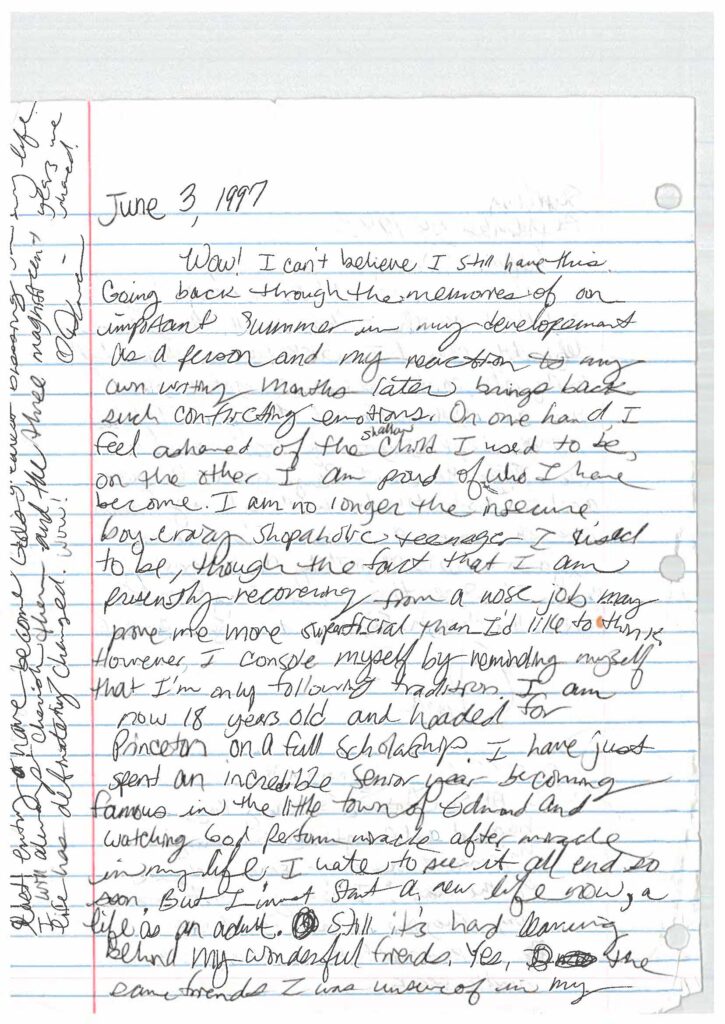 June 3, 1997
Wow! I can't believe I still have this.
Going back through the memories of an
important summer in my developement
as a person and my reaction to my
own writing months later brings back
such conflicting emotions. On one hand, I
feel ashamed of the shallow child I used to be,
on the other I am proud of who I have
become. I am no longer the insecure
boy crazy shopaholic teenager I used
to be, though the fact that I am
presently recovering from a nose job may
prove me more superficial than I'd like to think.
However, I console myself by reminding myself
that I'm only following tradition. I am
now 18 years old and headed for
Princeton on a full scholarship. I have just
spent an incredible senior year becoming
famous in the little town of Edmond and
watching God perform miracle after miracle
in my life. I hate to see it all end so
soon. But I must start a new life now, a
life as an adult. Still it's hard leaving
behind my wonderful friends. Yes, the
same friends I was unsure of in my
last entry have become blessings in my life.
I will always cherish them and the three magnificent years we
shared.
Life has definately changed. Wow!